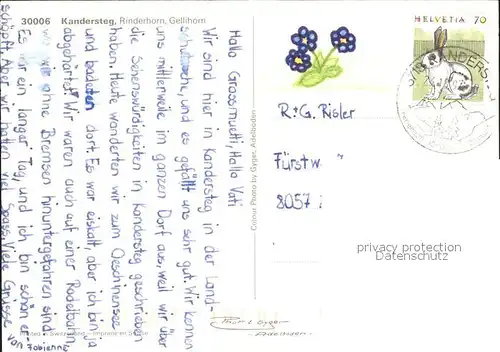 30006 Kandersteg, Rinderhorn, Gellihorn
Hallo Grossmuetti, Hallo Vati
Wir sind hier in Kandersteg in der Land-
schulwoche, und es gefällt uns sehr gut. Wir kennen
uns mittlerweile im ganzen Dorf aus, weil wir über
die Sehenswürdigkeiten in Kandersteg geschrieben
haben. Heute wanderten wir zum Oeschinensee
und badeten dort. Es war eiskalt, aber ich bin ja
abgehärtet! Wir waren auch auf einer Rodelbahn,
wo wir ohne Bremsen hinuntergefahren sind.
Es war ein langer Tag, und ich bin schon er-
schöpft. Aber wir hatten viel Spass. Viele Grüsse
von Fabienne
Colour Photo by Gyger, Adelboden
Photo Gyger
Adelboden
HELVETIA 70
R.+G. Risler
Fürstw
8057
privacy protection
Datenschutz